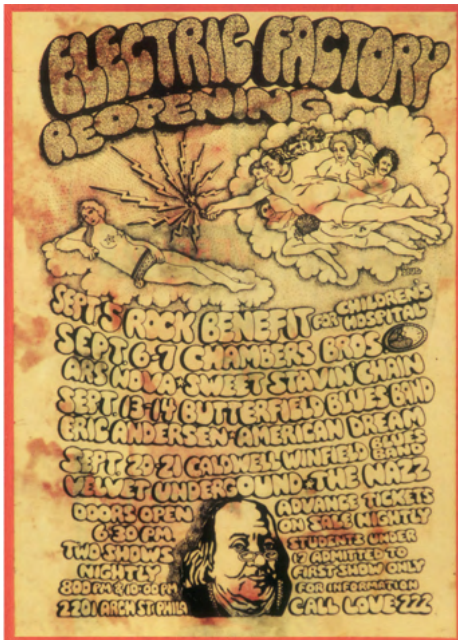 ELECTRIC FACTORY
REOPENING
SEPT 5 ROCK BENEFIT FOR CHILDREN'S HOSPITAL
SEPT. 6-7 CHAMBERS BROS
ARS NOVA · SWEET STAVIN' CHAIN
SEPT. 13-14 BUTTERFIELD BLUES BAND
ERIC ANDERSEN · AMERICAN DREAM
SEPT. 20-21 CALDWELL WINFIELD BLUES BAND
VELVET UNDERGROUND · THE NAZZ
DOORS OPEN
6:30 P.M.
TWO SHOWS
NIGHTLY
8:00 PM & 10:00 PM
2201 ARCH ST. PHILA
ADVANCE TICKETS
ON SALE NIGHTLY
STUDENTS UNDER
17 ADMITTED TO
FIRST SHOW ONLY
FOR INFORMATION
CALL LOVE 222